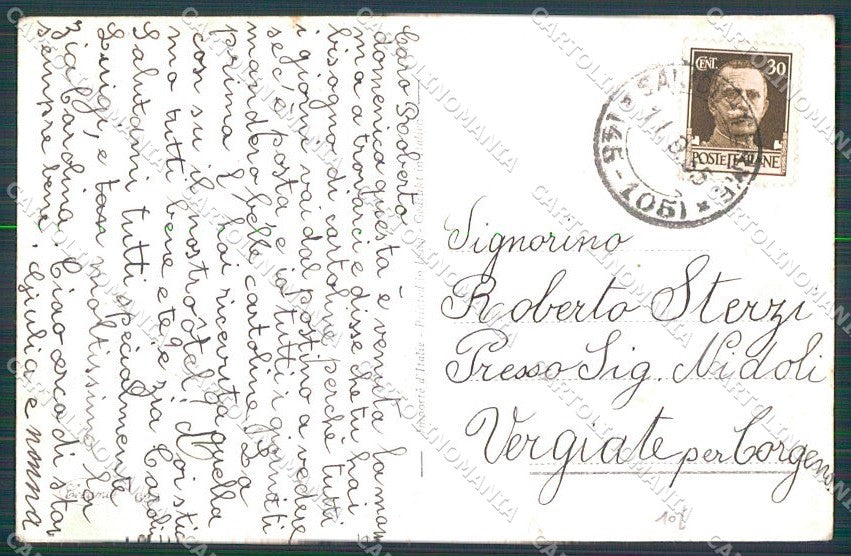 Caro Roberto
domenica questa è venuta la mam
ma a trovarci e disse che tu hai
bisogno di cartoline perchè tutti
i giorni vai dal postino a vedere
se c'è posta e in tutti i giornoti
manderò belle cartoline.
prima l'hai ricevuta quella
così su il nostro otel! Noi stia
mo tutti bene e te e zia Caroli
Salutami tutti specialmente
Luigi, e baci moltissimo la
zia Carolina. Ciao cerca di star
sempre bene. Giulia e nonna
CENT 30
POSTE ITALIANE
(145-105)
Signorino
Roberto Sterzi
Presso Sig. Nidoli
Vergiate per Corgeno
10L
CARTOLINOMANIA